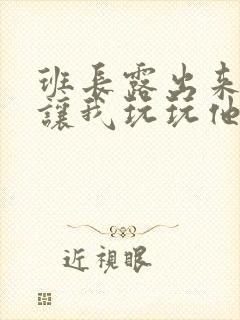 班長露出來
讓我玩玩他
近視眼